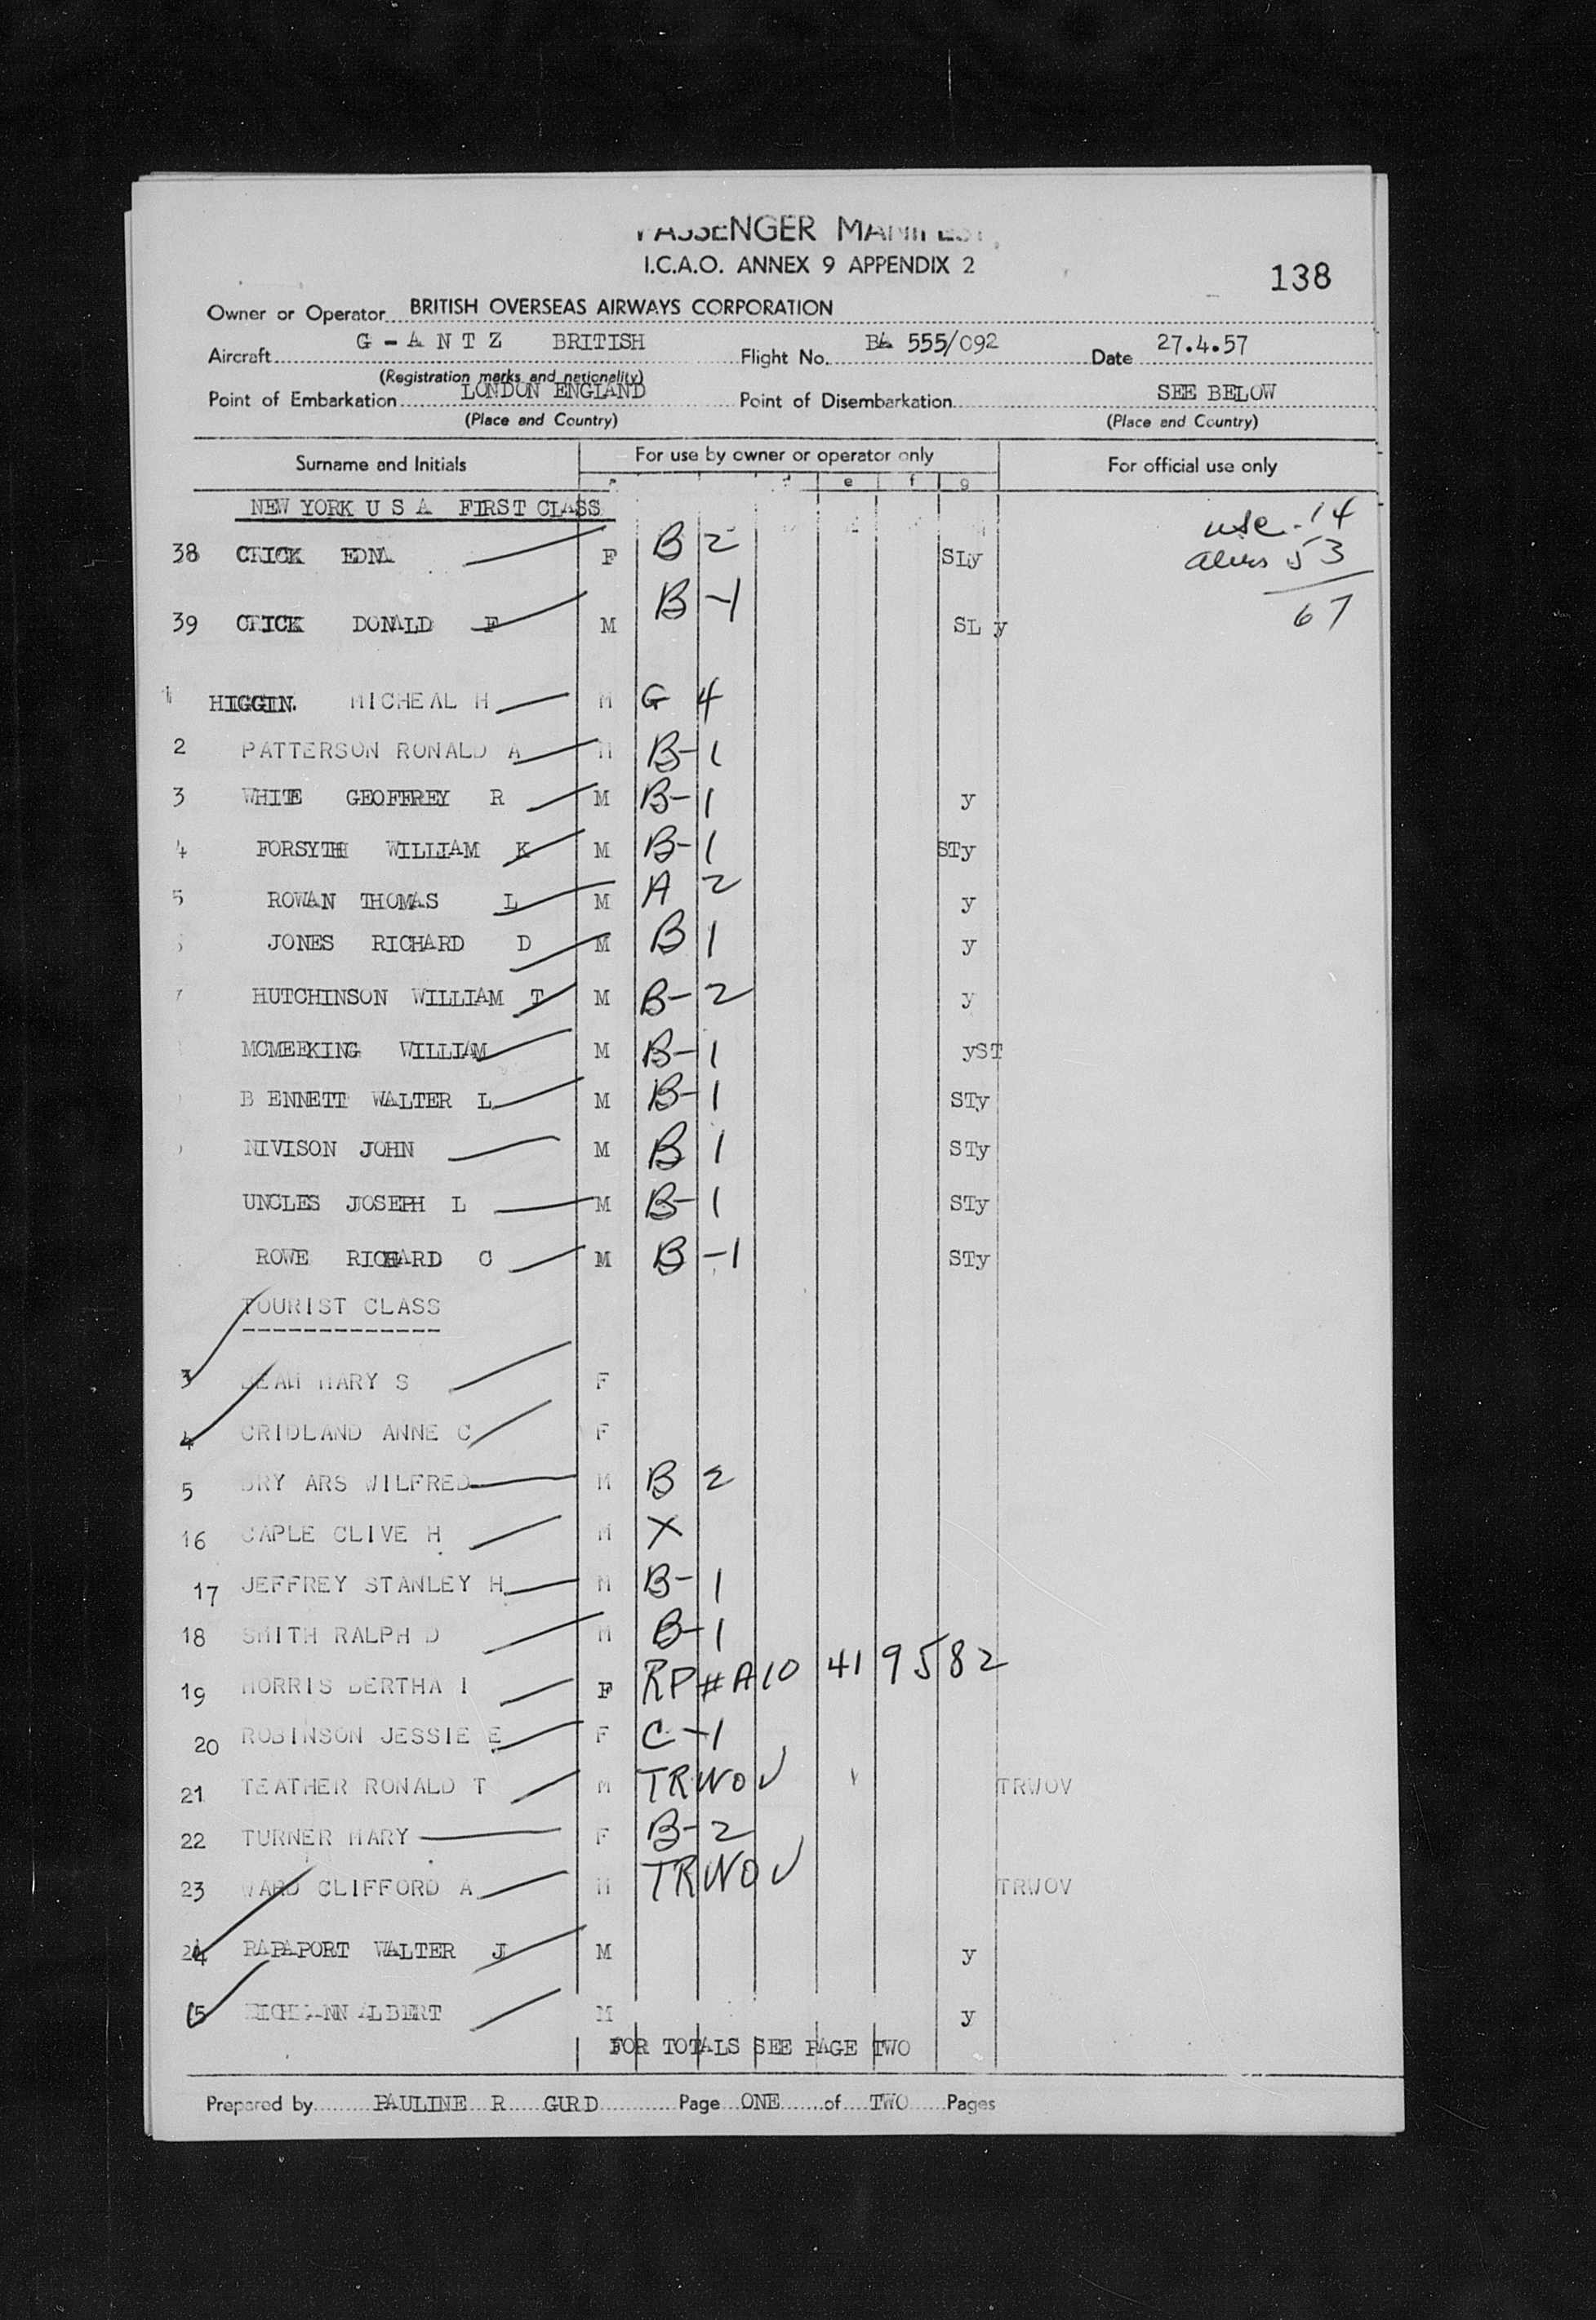 PASSENGER MANIFEST
I.C.A.O. ANNEX 9 APPENDIX 2
138
Owner or Operator BRITISH OVERSEAS AIRWAYS CORPORATION
Aircraft G-ANTZ BRITISH Flight No. BA 555/092 Date 27.4.57
(Registration marks and nationality)
Point of Embarkation LONDON ENGLAND Point of Disembarkation SEE BELOW
(Place and Country) (Place and Country)
Surname and Initials For use by owner or operator only For official use only
e f g
NEW YORK U S A FIRST CLASS
usc-14
38 CRICK EDNA F B 2 SLy
aliens 53
39 CRICK DONALD F M B-1 SL y
67
1 HIGGIN. MICHEAL H M G 4
2 PATTERSON RONALD A M B-1
3 WHITE GEOFFREY R M B-1 y
4 FORSYTH WILLIAM K M B-1 STy
5 ROWAN THOMAS L M A 2 y
JONES RICHARD D M B 1 y
7 HUTCHINSON WILLIAM T M B-2 y
MCMEEKING WILLIAM M B-1 yST
B ENNETT WALTER L M B-1 STy
NIVISON JOHN M B 1 STy
UNCLES JOSEPH L M B-1 STy
ROWE RICHARD C M B-1 STy
TOURIST CLASS
-------------
3 MARY S F
4 CRIDLAND ANNE C F
5 BRY ARS WILFRED M B 2
16 CAPLE CLIVE H M X
17 JEFFREY STANLEY H M B-1
18 SMITH RALPH D M B-1
19 MORRIS BERTHA I F RP#A10 419582
20 ROBINSON JESSIE E F C-1
21 TEATHER RONALD T M TRWOV TRWOV
22 TURNER MARY F B-2
23 WARD CLIFFORD A M TRWOV TRWOV
24 RAPAPORT WALTER J M y
5 ALBERT M y
FOR TOTALS SEE PAGE TWO
Prepared by PAULINE R GURD Page ONE of TWO Pages